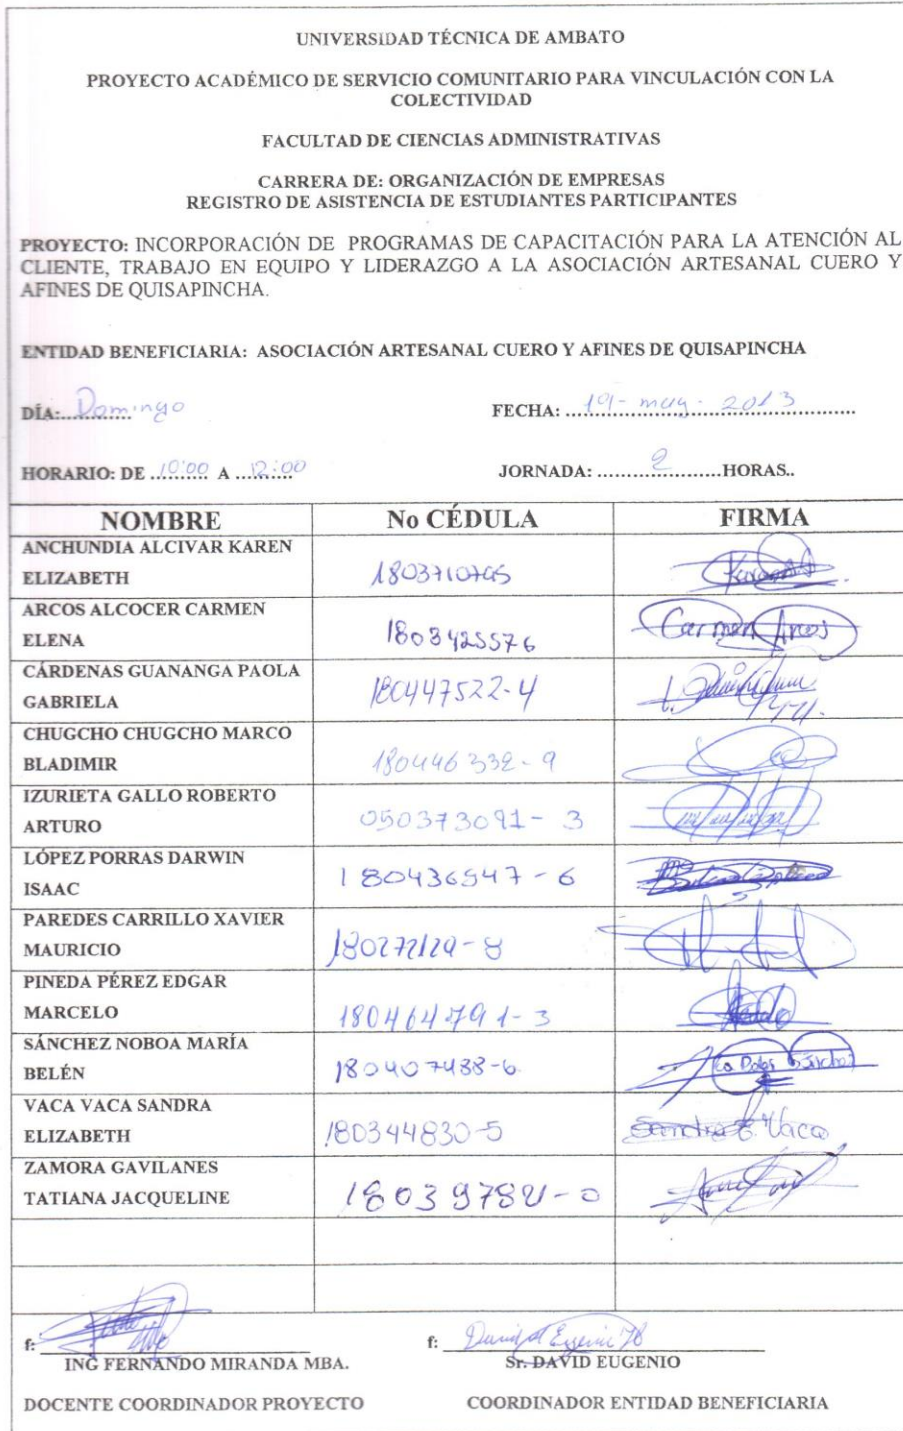 UNIVERSIDAD TÉCNICA DE AMBATO
PROYECTO ACADÉMICO DE SERVICIO COMUNITARIO PARA VINCULACIÓN CON LA
COLECTIVIDAD
FACULTAD DE CIENCIAS ADMINISTRATIVAS
CARRERA DE: ORGANIZACIÓN DE EMPRESAS
REGISTRO DE ASISTENCIA DE ESTUDIANTES PARTICIPANTES
PROYECTO: INCORPORACIÓN DE PROGRAMAS DE CAPACITACIÓN PARA LA ATENCIÓN AL
CLIENTE, TRABAJO EN EQUIPO Y LIDERAZGO A LA ASOCIACIÓN ARTESANAL CUERO Y
AFINES DE QUISAPINCHA.
ENTIDAD BENEFICIARIA: ASOCIACIÓN ARTESANAL CUERO Y AFINES DE QUISAPINCHA
DÍA: Domingo FECHA: 19-may-2013
HORARIO: DE 10:00 A 12:00 JORNADA: 2 HORAS..
NOMBRE No CÉDULA FIRMA
ANCHUNDIA ALCIVAR KAREN
ELIZABETH
ARCOS ALCOCER CARMEN
ELENA 1803425576 Carmen Arcos
CÁRDENAS GUANANGA PAOLA
GABRIELA 180447522-4
CHUGCHO CHUGCHO MARCO
BLADIMIR 180446332-9
IZURIETA GALLO ROBERTO
ARTURO 050373091-3
LÓPEZ PORRAS DARWIN
ISAAC 180436547-6
PAREDES CARRILLO XAVIER
MAURICIO 180272129-8
PINEDA PÉREZ EDGAR
MARCELO 180464791-3
SÁNCHEZ NOBOA MARÍA
BELÉN 180407488-6
VACA VACA SANDRA
ELIZABETH 180344830-5 Sandra E. Vaca
ZAMORA GAVILANES
TATIANA JACQUELINE
f: f: David Eugenio
ING FERNANDO MIRANDA MBA. Sr. DAVID EUGENIO
DOCENTE COORDINADOR PROYECTO COORDINADOR ENTIDAD BENEFICIARIA